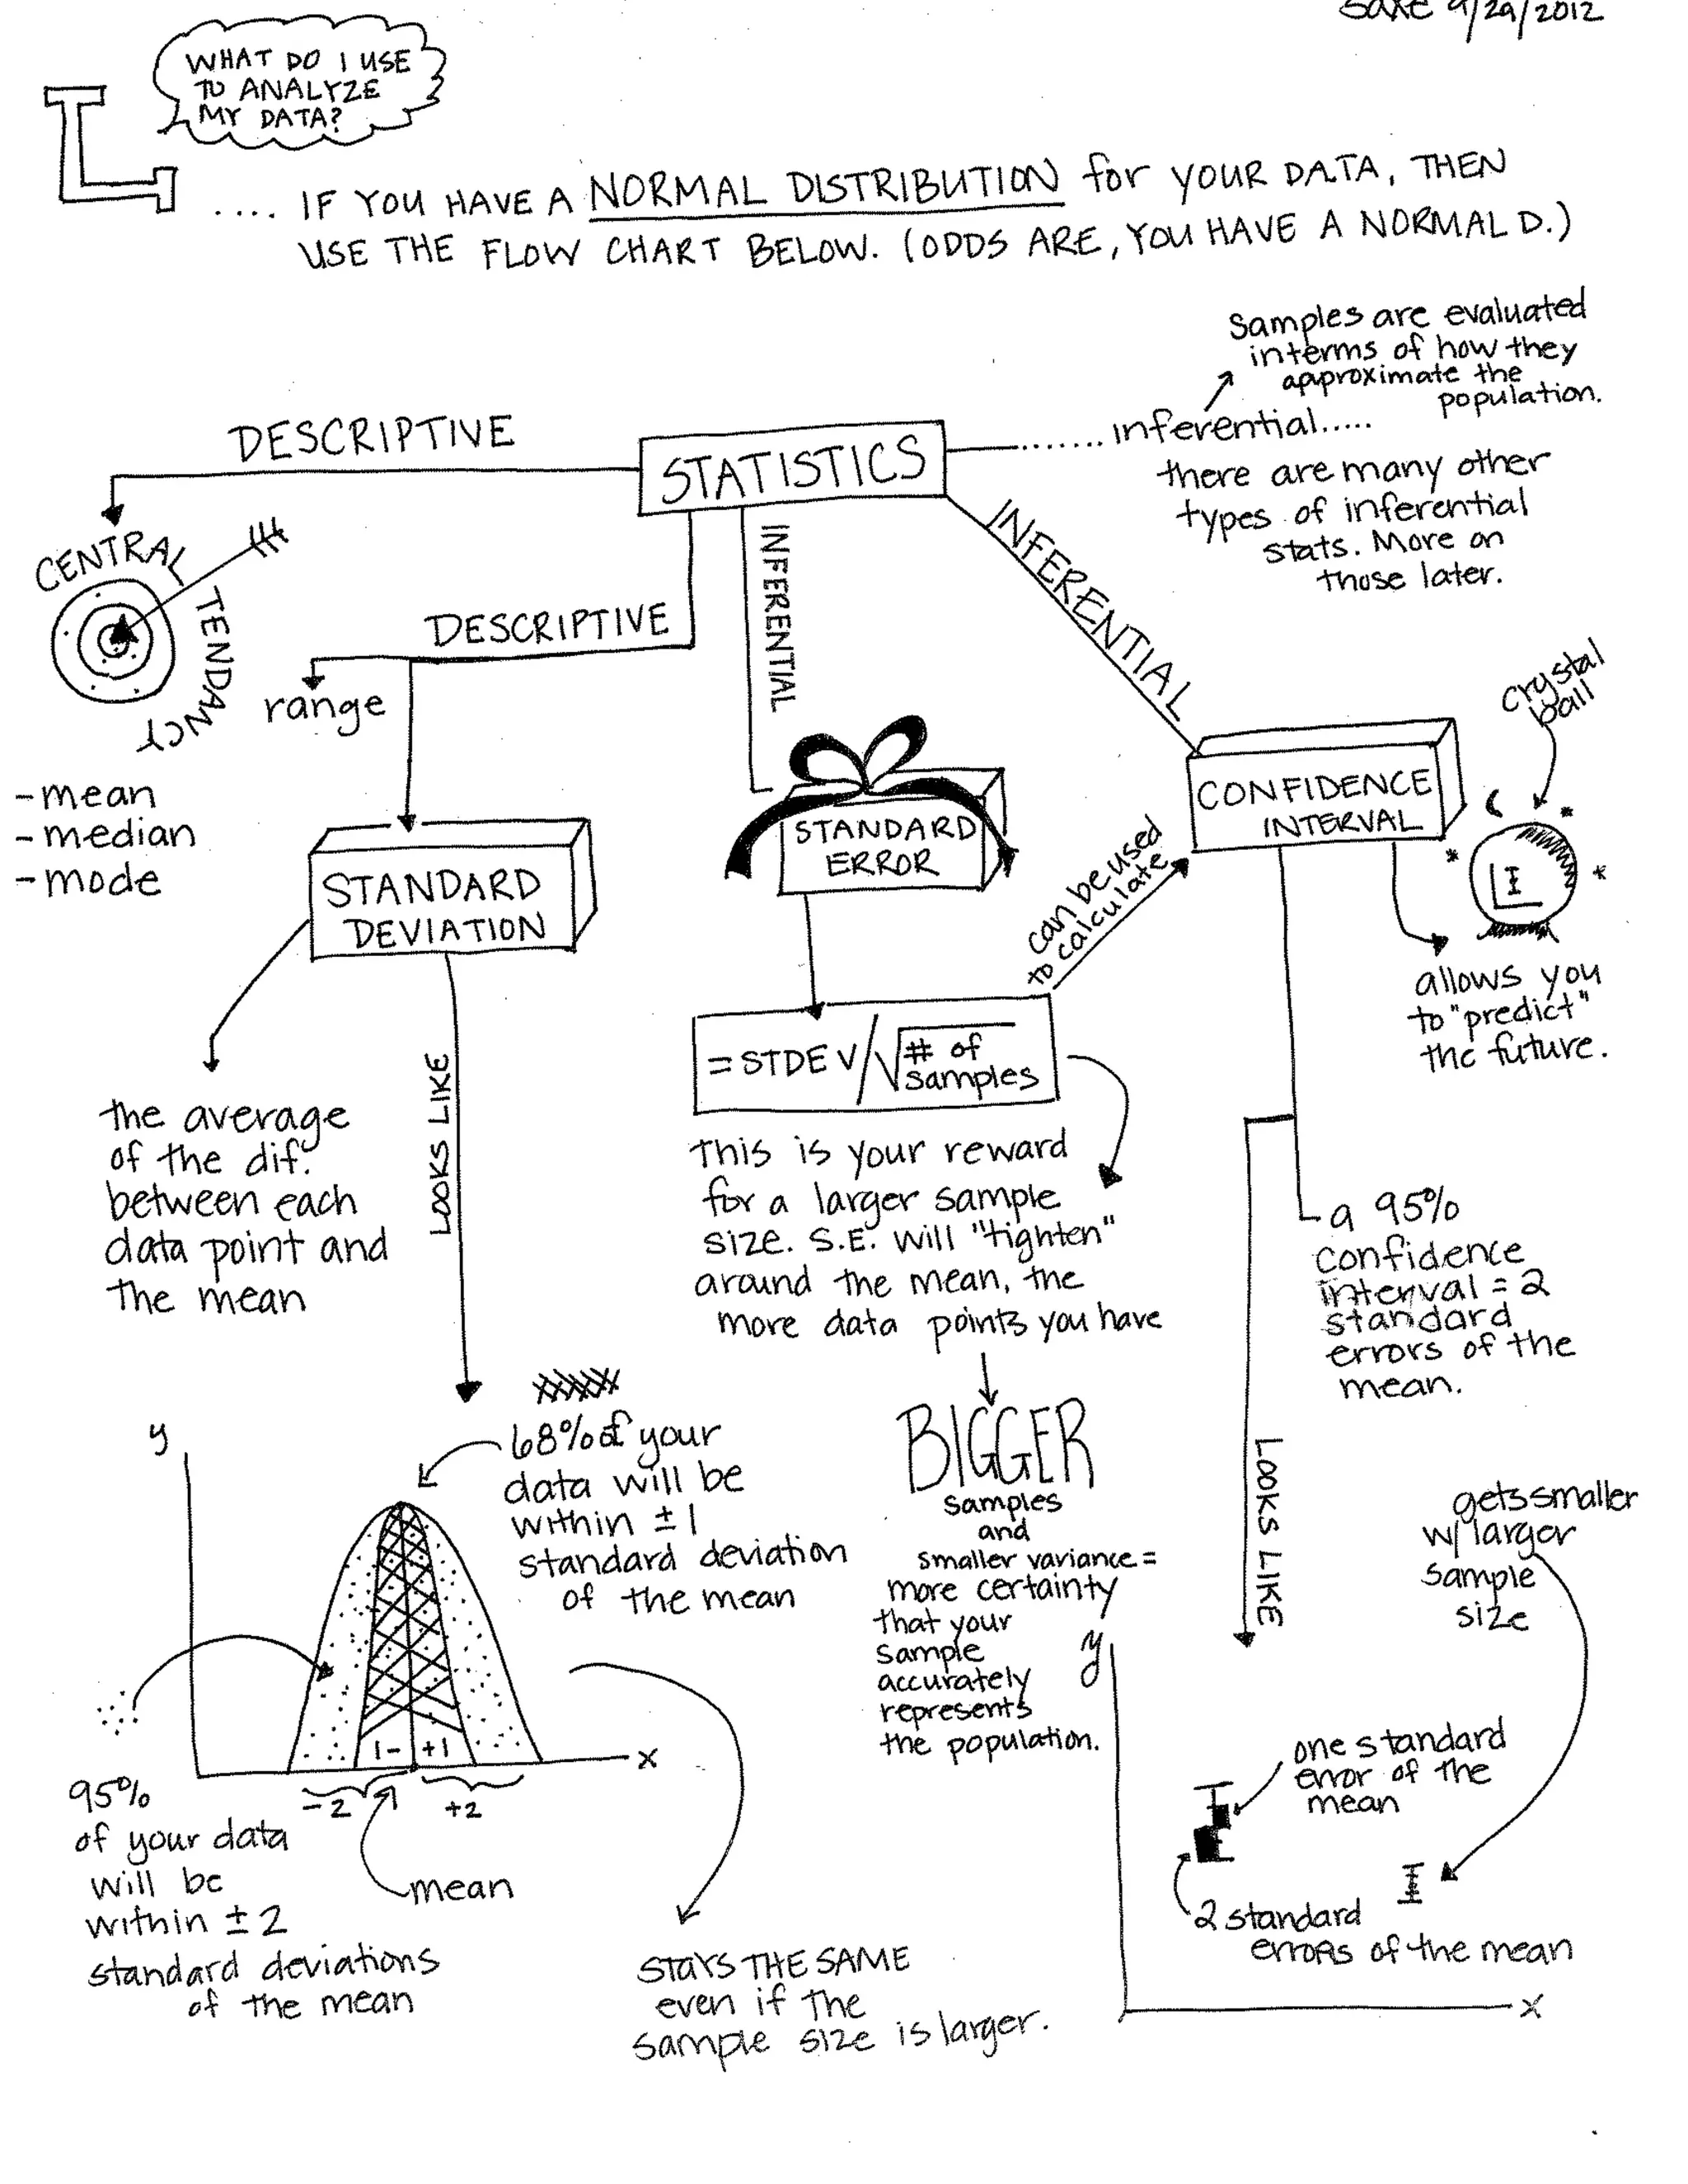 9/29/2012
WHAT DO I USE
TO ANALYZE
MY DATA?
.... IF YOU HAVE A NORMAL DISTRIBUTION for YOUR DATA, THEN
USE THE FLOW CHART BELOW. (ODDS ARE, YOU HAVE A NORMAL D.)
Samples are evaluated
in terms of how they
approximate the
population.
inferential.....
there are many other
types of inferential
stats. More on
those later.
STATISTICS
DESCRIPTIVE
CENTRAL
TENDANCY
- mean
- median
- mode
DESCRIPTIVE
range
STANDARD
DEVIATION
the average
of the dif.
between each
data point and
the mean
LOOKS LIKE
68% of your
data will be
within ± 1
standard deviation
of the mean
y
x
1-
+1
-2
+2
mean
95%
of your data
will be
within ± 2
standard deviations
of the mean
STAYS THE SAME
even if the
sample size is larger.
INFERENTIAL
STANDARD
ERROR
= STDEV/√# of
samples
can be used
to calculate
This is your reward
for a larger sample
size. S.E. will "tighten"
around the mean, the
more data points you have
BIGGER
samples
and
smaller variance =
more certainty
that your
sample
accurately
represents
the population.
INFERENTIAL
CONFIDENCE
INTERVAL
crystal
ball
allows you
to "predict"
the future.
a 95%
confidence
interval = 2
standard
errors of the
mean.
LOOKS LIKE
gets smaller
w/ larger
sample
size
y
one standard
error of the
mean
2 standard
errors of the mean
x